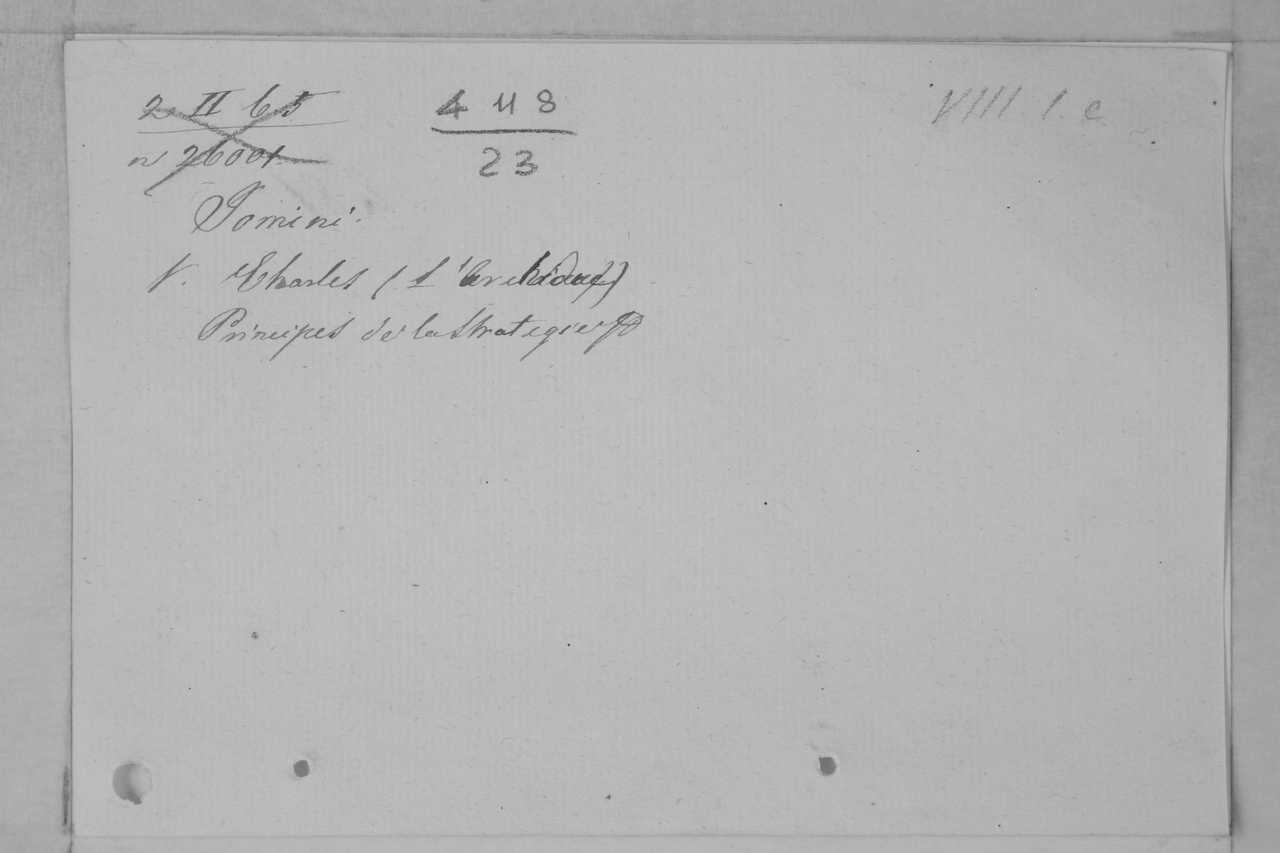 2 II 65
n 26001
4 H 8
23
VIII. 1. c
Jomini.
V. Charles (L'archiduc)
Principes de la Strategie